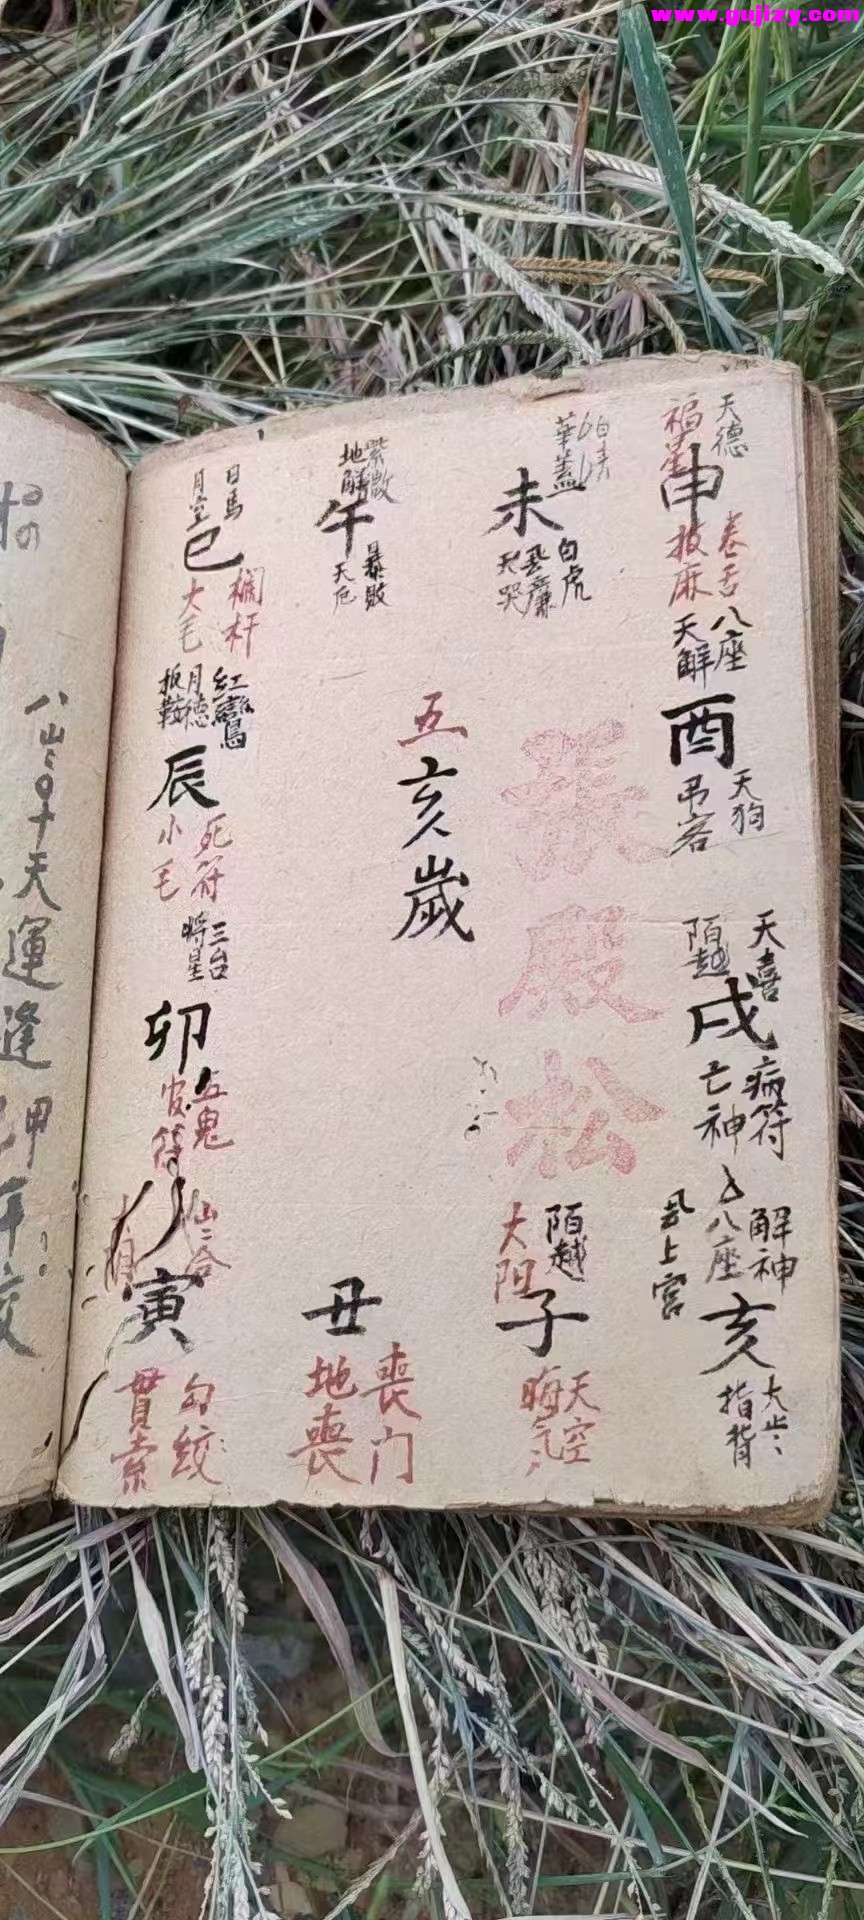 www.gujizy.com
天德
福星
申
卷舌
披麻
八座
天解
酉
天狗
弔客
天喜
陌越
戌
病符
亡神
解神
八座
亥
指背
華蓋
未
白虎
飛廉
天哭
紫微
地解
午
暴敗
天厄
日馬
月空
巳
欄杆
大毛
紅鸞
月德
扳鞍
辰
死符
小毛
三台
將星
卯
五鬼
官符
寅
勾絞
貫索
丑
喪门
地喪
陌越
子
天空
晦气
五
亥歲
張殿松
天運逢